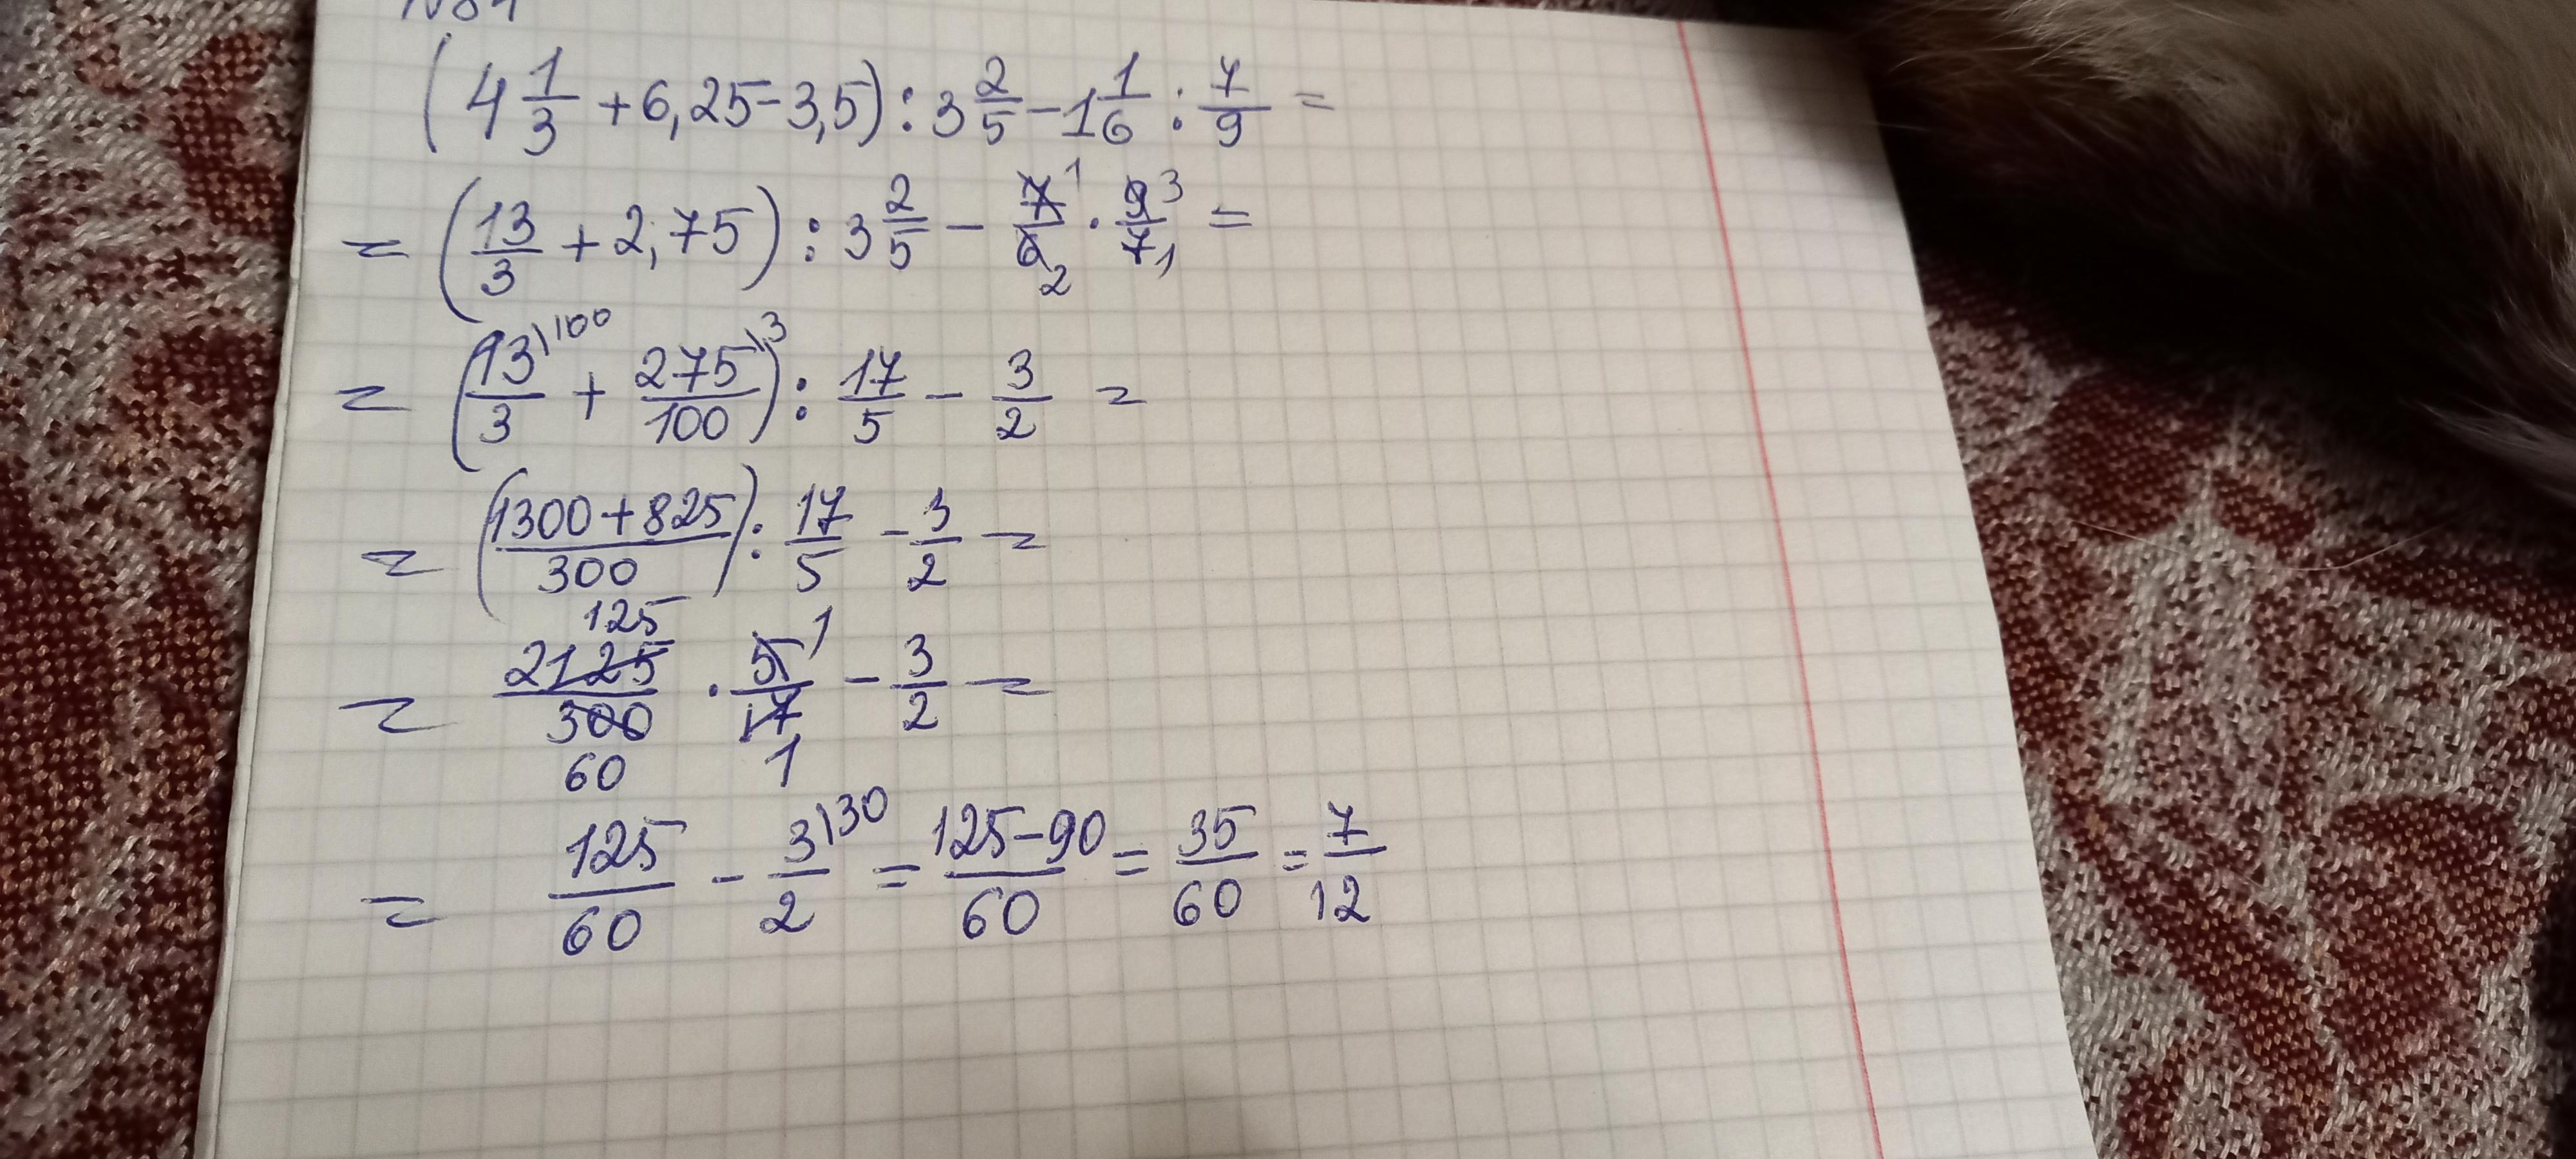 (4 1/3 + 6,25 - 3,5) : 3 2/5 - 1 1/6 : 7/9 =
= (13/3 + 2,75) : 3 2/5 - 7 1/6 2 · 9 3/7 1 =
= (13\100/3 + 275\3/100) : 17/5 - 3/2 =
= (1300+825/300) : 17/5 - 3/2 =
125
= 2125/300 · 5 1/17 - 3/2 =
60 1
= 125/60 - 3\30/2 = 125-90/60 = 35/60 = 7/12